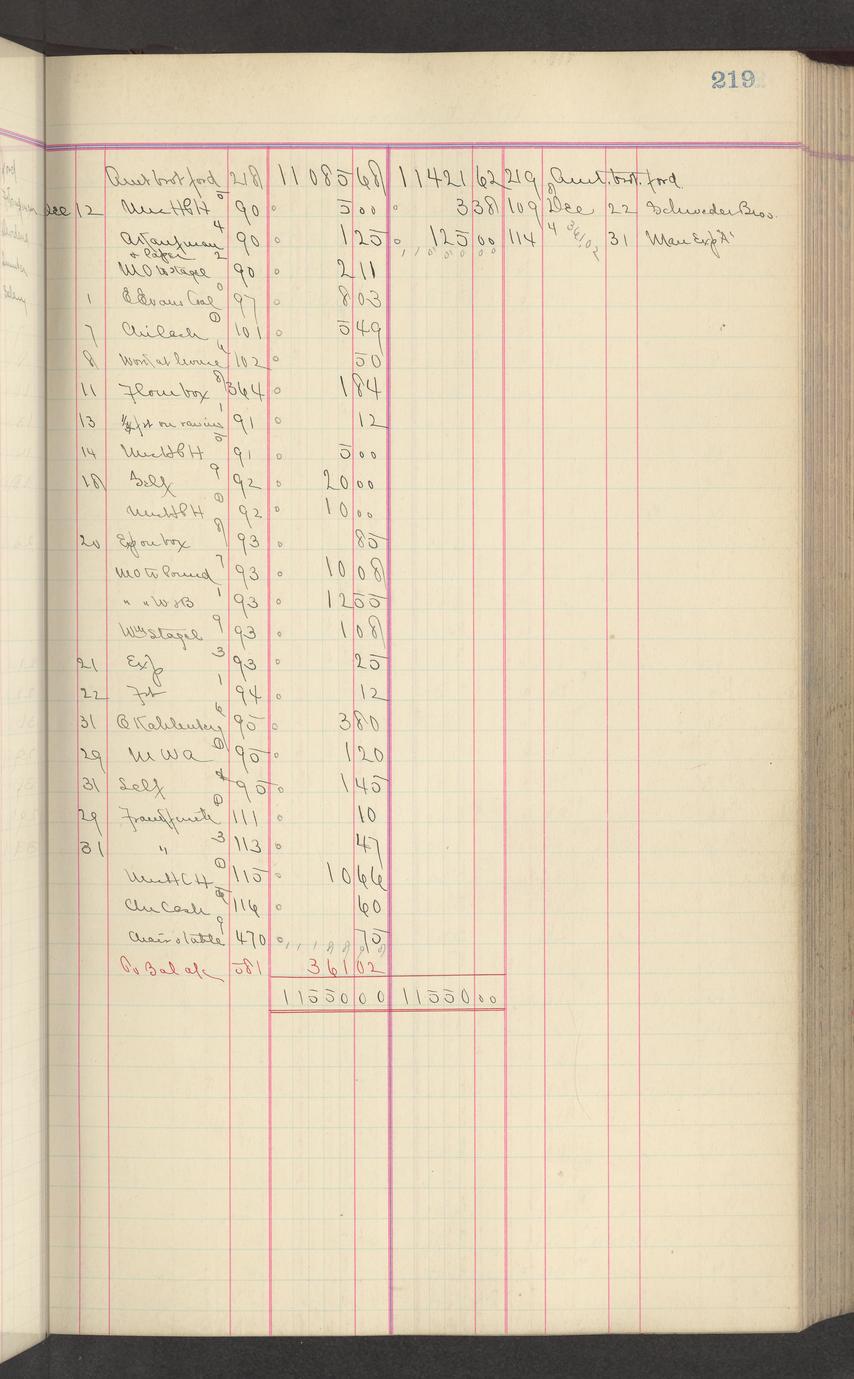 219
Amt brot ford 218 11085 68 11421 62 219 Amt. brot. ford.
Dec 12 Mrs H P H 5 90 5 00 3 38 109 8 Dec 22 Schroeder Bros.
A Kaufman 4 90 1 25 125 00 114 4 361 02 31 Man Exp "A"
& Paper 2
M O to Stagel 90 2 11
1 E Evans Coal 0 97 8 03
7 Chi Cash 0 101 5 49
8 Work at house 102 50
11 Flour box 8 364 1 84
13 frt on raisins 1 91 12
14 Mrs H P H 5 91 5 00
18 Self 9 92 20 00
Mrs H P H 0 92 10 00
20 Exp on box 8 93 85
M O to Pound 7 93 10 08
" " W & B 1 93 12 55
Wm Stagel 9 93 1 08
21 Exp 3 93 25
22 Frt 1 94 12
31 6 95 3 80
29 M W A 0 95 1 20
31 Self 95 1 45
29 0 111 10
31 " 3 113 47
Mrs H C H 0 115 10 66
Chi Cash 116 60
Chairs & table 9 470 75
To Bal a/c 581 361 02
11550 00 11550 00